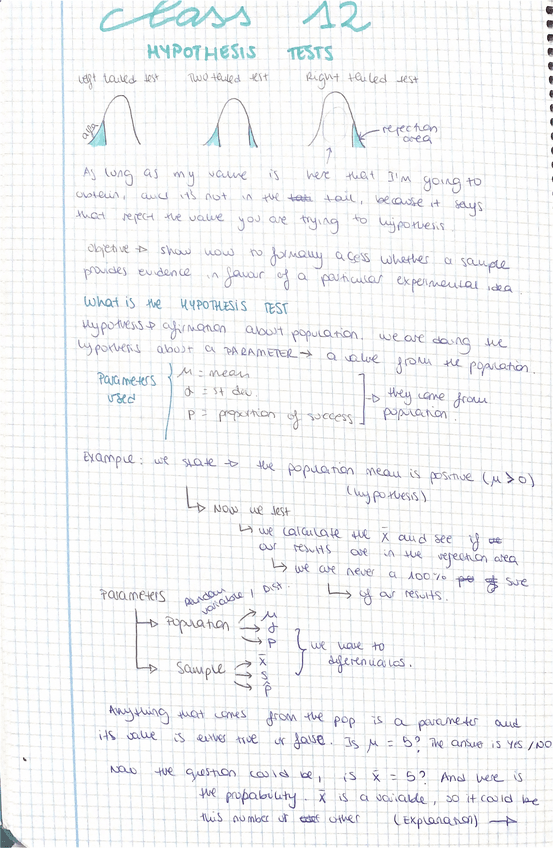 Class 12
HYPOTHESIS TESTS
Left tailed test Two tailed test Right tailed test
alfa
rejection
area
As long as my value is here that I'm going to
obtain, and it's not in the tail, because it says
that reject the value you are trying to hypothesis.
Objetive → show how to formally acess whether a sample
provides evidence in favor of a particular experimental idea
What is the HYPOTHESIS TEST
Hypothesis → afirmation about population. we are doing the
hypothesis about a PARAMETER → a value from the population.
Parameters used
μ = mean
σ = st dev.
p = proportion of success
→ they come from
population.
Example: we state → the population mean is positive (μ > 0)
(hypothesis)
Now we test
we calculate the x̄ and see if
our results are in the rejection area
we are never a 100% sure
of our results.
Parameters random variable / Dist.
Population → μ
→ σ
→ p
Sample → x̄
→ s
→ p̂
we have to
diferenciatos.
Anything that comes from the pop is a parameter and
its value is either true or false. Is μ = 5? The answer is YES/NO
Now the question could be, is x̄ = 5? And here is
the propability. x̄ is a vaiable, so it could be
this number or other (Explanation) →